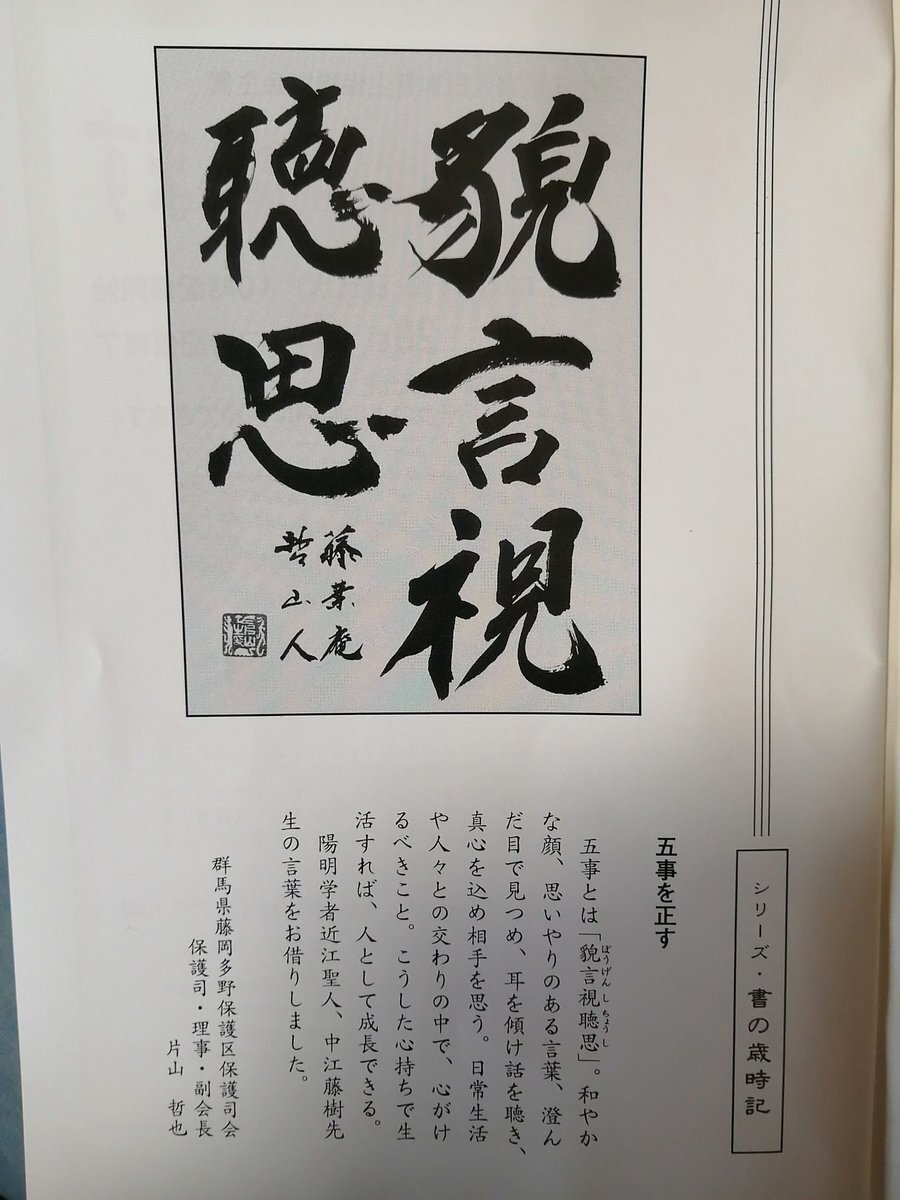 シリーズ・書の歳時記
貌言視
聴思
藤葉庵
哲山人
五事を正す
五事とは「貌言視聴思」。和やか
ぼうげんしちょうし
な顔、思いやりのある言葉、澄ん
だ目で見つめ、耳を傾け話を聴き、
真心を込め相手を思う。日常生活
や人々との交わりの中で、心がけ
るべきこと。こうした心持ちで生
活すれば、人として成長できる。
陽明学者近江聖人、中江藤樹先
生の言葉をお借りしました。
群馬県藤岡多野保護区保護司会
保護司・理事・副会長
片山 哲也